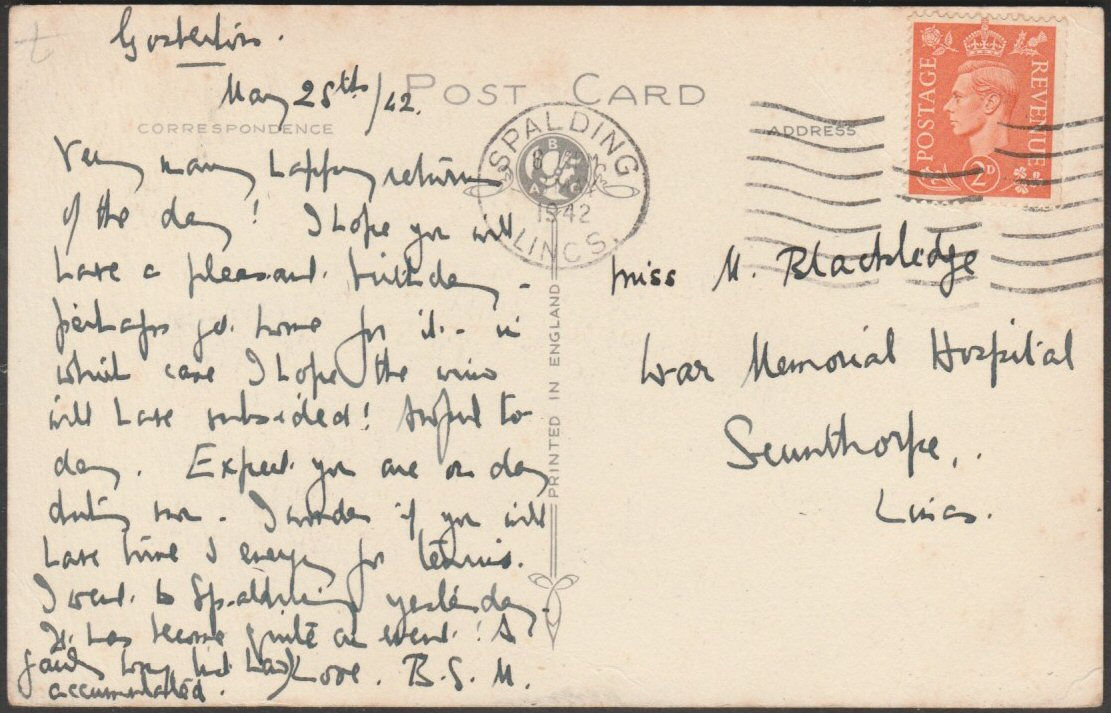 Gosberton.
May 28th/42.
POST CARD
CORRESPONDENCE
ADDRESS
Very many happy returns
of the day! I hope you will
have a pleasant birthday -
perhaps go home for it - in
which case I hope the wind
will have subsided! Awful to-
day. Expect you are on day
duty now. I wonder if you will
have time & energy for tennis.
I went to Spalding yesterday -
It has become quite an event! A
fairly long list had
accumulated.
Love. B.S.M.
PRINTED IN ENGLAND
SPALDING
LINCS.
1942
POSTAGE
REVENUE
2D
Miss M. Blackledge
War Memorial Hospital
Scunthorpe,
Lincs.